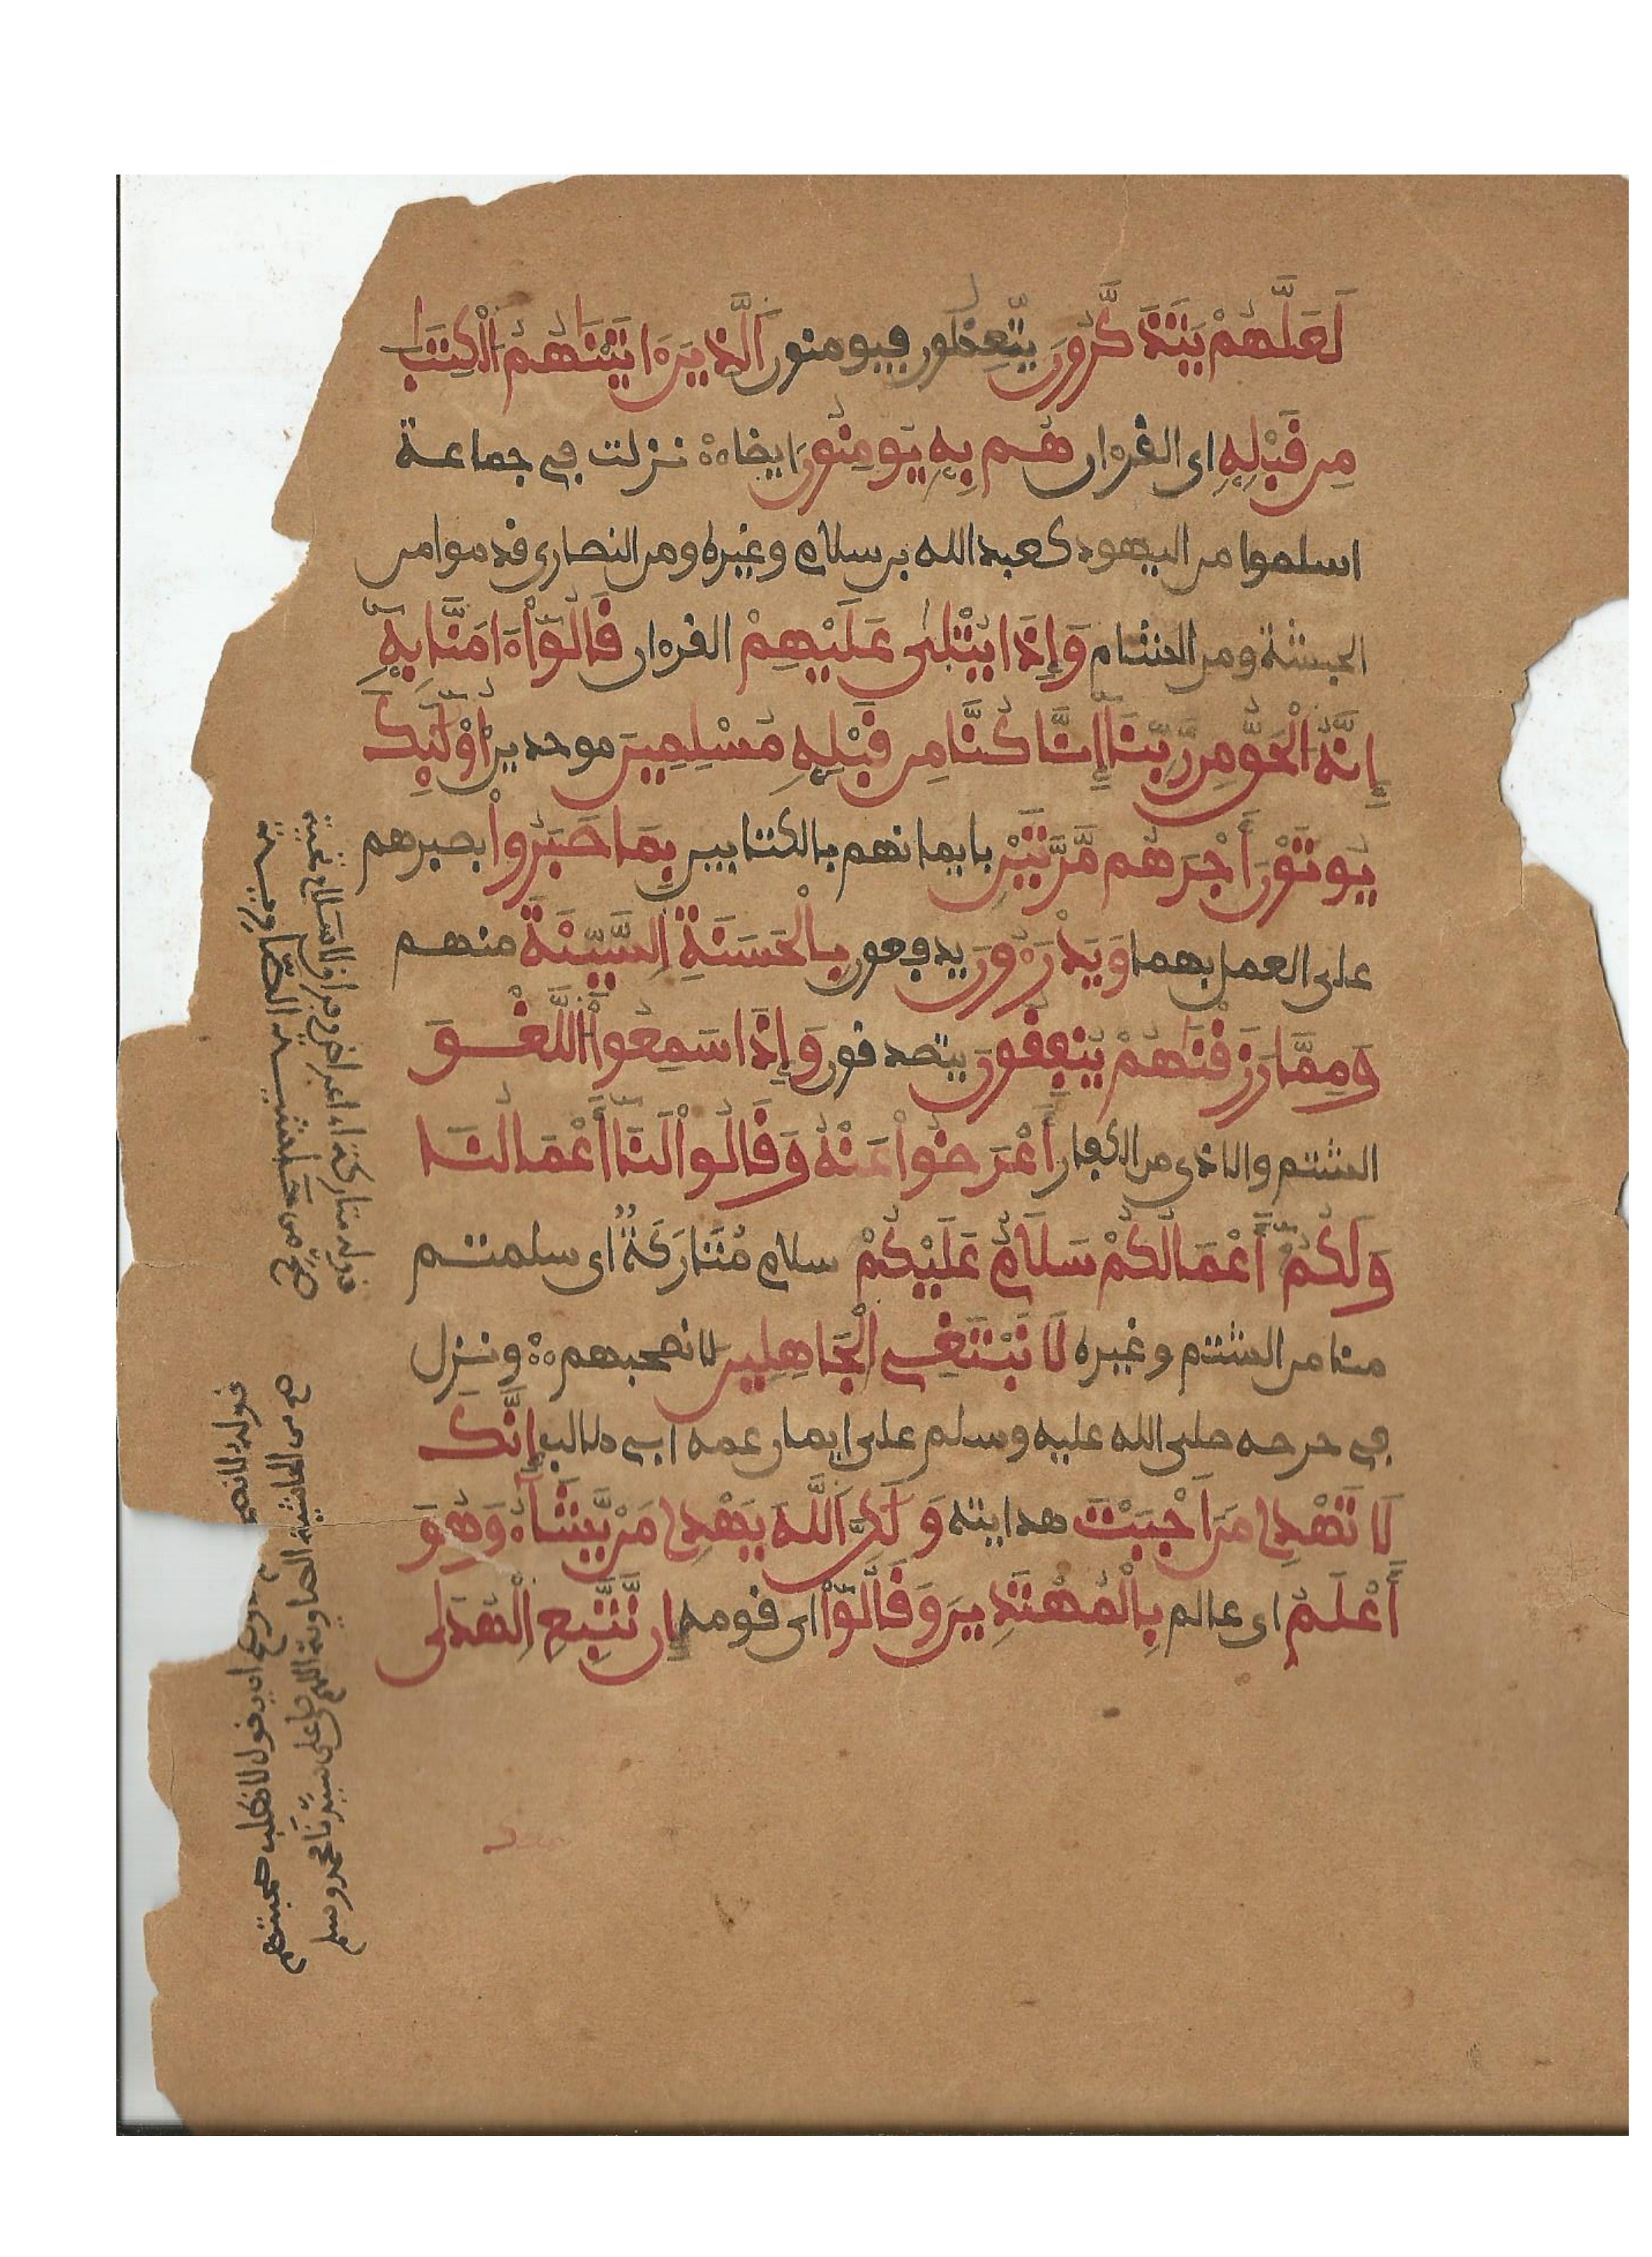 لَعَلَّهُمْ يَتَذَكَّرُونَ يتّعِظون فيومنون اَلَّذِينَ ءَاتَيْنَاهُمُ اُلْكِتَابَ
مِن قَبْلِهِ اى القرءان هُم بِهِ يُومِنُونَ ايضاه نزلت في جماعة
اسلموا من اليهود كعبد الله بن سلام وغيره ومن النصارى قدموا من
الحبشة ومن الشام وَإِذَا يُتْلَىٰ عَلَيْهِمْ القرءان قَالُوٓاْ ءَامَنَّا بِهِۦٓ
إِنَّهُ اُلْحَقُّ مِن رَّبِّنَآ إِنَّا كُنَّا مِن قَبْلِهِ مُسْلِمِينَ موحدين أُوْلَٰٓئِكَ
يُوتَوْنَ أَجْرَهُم مَّرَّتَيْنِ بايمانهم بالكتابين بِمَا صَبَرُواْ بصبرهم
على العمل بهما وَيَدْرَءُونَ يدفعون بِالْحَسَنَةِ اِلسَّيِّئَةَ منهم
وَمِمَّا رَزَقْنَاهُمْ يُنفِقُونَ يتصدقون وَإِذَا سَمِعُواْ اُللَّغْوَ
الشتم والاذى من الكفار أَعْرَضُواْ عَنْهُ وَقَالُواْ لَنَآ أَعْمَالُنَا
وَلَكُمْ أَعْمَالُكُمْ سَلَامٌ عَلَيْكُمْ سلام مُتَارَكَةٌ اى سلمتم
منا من الشتم وغيره لَا نَبْتَغِي اِلْجَاهِلِينَ لا نصحبهم ه ونزل
في حرصه صلى الله عليه وسلم على ايمان عمه ابي طالب إِنَّكَ
لَا تَهْدِي مَنَ اَحْبَبْتَ هدايته وَلَٰكِنَّ اَللَّهَ يَهْدِي مَنْ يَّشَآءُ وَهُوَ
أَعْلَمُ اى عالم بِالْمُهْتَدِينَ وَقَالُوٓاْ اى قومه إِن نَّتَّبِعِ اِلْهُدَىٰ
قوله متاركة اى اعراض وفراق لا سلام تحية
قوله لا نصحبهم
اى يقول لا نطلب صحبتهم
صح من الحاشية الصاوية اللهم صل على سيدنا محمد وسلم